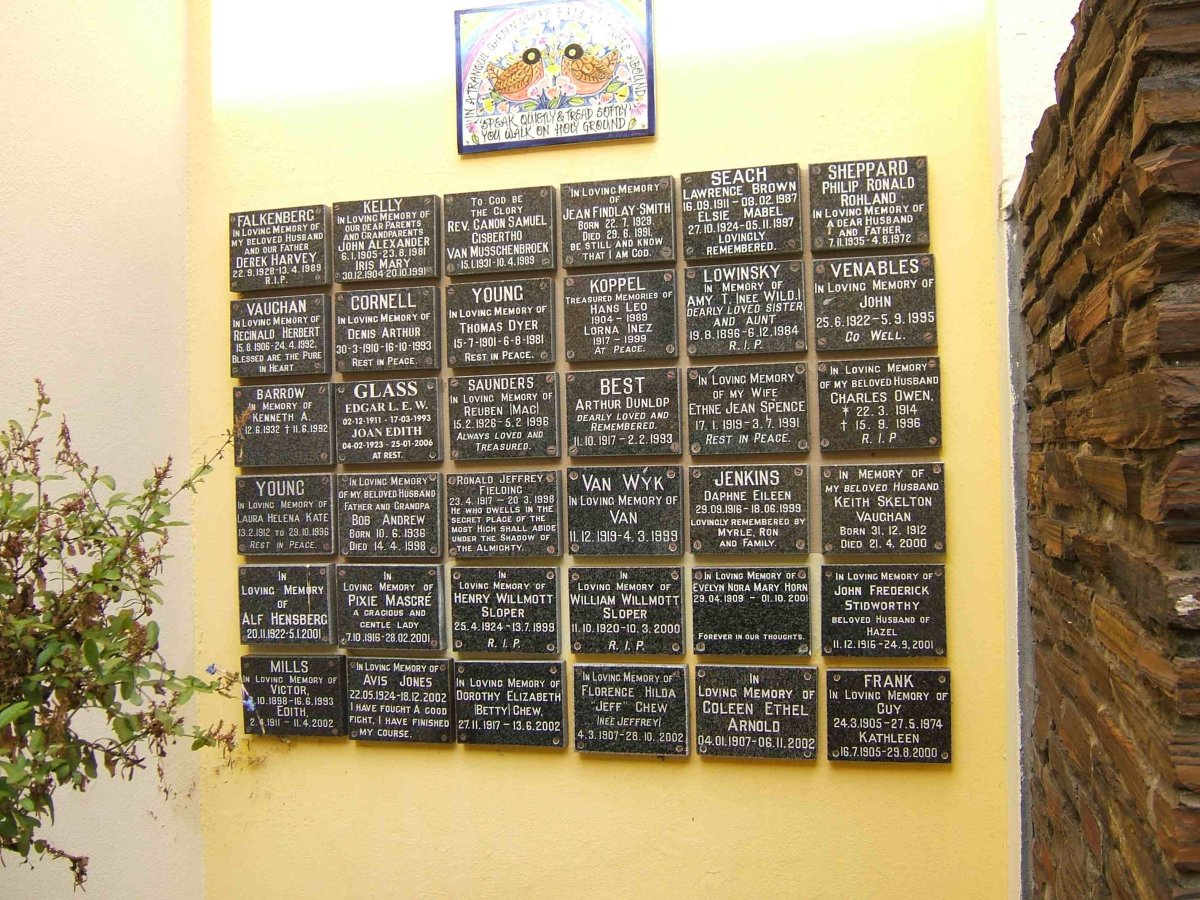 IN A TRANQUIL GARDEN WHERE
SPEAK QUIETLY & TREAD SOFTLY
YOU WALK ON HOLY GROUND
FALKENBERG
IN LOVING MEMORY OF
MY BELOVED HUSBAND
AND OUR FATHER
DEREK HARVEY
22.9.1928-13.4.1989
R.I.P.
KELLY
IN LOVING MEMORY OF
OUR DEAR PARENTS
AND GRANDPARENTS
JOHN ALEXANDER
6.1.1905-23.8.1981
IRIS MARY
30.12.1904-20.10.1991
TO GOD BE
THE GLORY
REV. CANON SAMUEL
GISBERTHO
VAN MUSSCHENBROEK
15.1.1931-10.4.1989
IN LOVING MEMORY
OF
JEAN FINDLAY-SMITH
BORN 22.7.1929.
DIED 29.6.1991.
BE STILL AND KNOW
THAT I AM GOD.
SEACH
LAWRENCE BROWN
16.09.1911 - 08.02.1987
ELSIE MABEL
27.10.1924-05.11.1997
LOVINGLY
REMEMBERED.
SHEPPARD
PHILIP RONALD
ROHLAND
IN LOVING MEMORY OF
A DEAR HUSBAND
AND FATHER
7.11.1935-4.8.1972
VAUGHAN
IN LOVING MEMORY OF
REGINALD HERBERT
15.8.1906-24.4.1992.
BLESSED ARE THE PURE
IN HEART
CORNELL
IN LOVING MEMORY OF
DENIS ARTHUR
30-3-1910-16-10-1993
REST IN PEACE.
YOUNG
IN LOVING MEMORY OF
THOMAS DYER
15-7-1901-6-8-1981
REST IN PEACE.
KOPPEL
TREASURED MEMORIES OF
HANS LEO
1904 - 1989
LORNA INEZ
1917 - 1999
AT PEACE.
LOWINSKY
IN MEMORY OF
AMY T. (NEE WILD.)
DEARLY LOVED SISTER
AND AUNT
19.8.1896-6.12.1984
R.I.P
VENABLES
IN LOVING MEMORY OF
JOHN
25.6.1922-5.9.1995
GO WELL.
BARROW
IN MEMORY OF
KENNETH A.
12.6.1932 † 11.6.1992
GLASS
EDGAR L.E.W.
02-12-1911 - 17-03-1993
JOAN EDITH
04-02-1923 - 25-01-2006
AT REST.
SAUNDERS
IN LOVING MEMORY OF
REUBEN (MAC)
15.2.1926-5.2.1996
ALWAYS LOVED AND
TREASURED.
BEST
ARTHUR DUNLOP
DEARLY LOVED AND
REMEMBERED.
11.10.1917 - 2.2.1993
IN LOVING MEMORY
OF MY WIFE
ETHNE JEAN SPENCE
17.1.1919-3.7.1991
REST IN PEACE.
IN LOVING MEMORY
OF MY BELOVED HUSBAND
CHARLES OWEN,
* 22.3.1914
† 15.9.1996
R.I.P
YOUNG
IN LOVING MEMORY OF
LAURA HELENA KATE
13.2.1912 TO 29.10.1996
REST IN PEACE.
IN LOVING MEMORY OF
MY BELOVED HUSBAND
FATHER AND GRANDPA
BOB ANDREW
BORN 10.6.1936
DIED 14.4.1998
RONALD JEFFREY
FIELDING
23.4.1917 - 20.3.1998
HE WHO DWELLS IN THE
SECRET PLACE OF THE
MOST HIGH SHALL ABIDE
UNDER THE SHADOW OF
THE ALMIGHTY.
VAN WYK
IN LOVING MEMORY OF
VAN
11.12.1919-4.3.1999
JENKINS
DAPHNE EILEEN
29.09.1916-18.06.1999
LOVINGLY REMEMBERED BY
MYRLE, RON
AND FAMILY.
IN MEMORY OF
MY BELOVED HUSBAND
KEITH SKELTON
VAUGHAN
BORN 31.12.1912
DIED 21.4.2000
IN
LOVING MEMORY
OF
ALF HENSBERG
20.11.1922-5.1.2001
IN LOVING MEMORY OF
PIXIE MASGRÉ
A GRACIOUS AND
GENTLE LADY
7.10.1916-28.02.2001
IN
LOVING MEMORY OF
HENRY WILLMOTT
SLOPER
25.4.1924-13.7.1999
R.I.P
IN
LOVING MEMORY OF
WILLIAM WILLMOTT
SLOPER
11.10.1920-10.3.2000
R.I.P
IN LOVING MEMORY OF
EVELYN NORA MARY HORN
29.04.1909 - 01.10.2001
FOREVER IN OUR THOUGHTS.
IN LOVING MEMORY OF
JOHN FREDERICK
STIDWORTHY
BELOVED HUSBAND OF
HAZEL
11.12.1916-24.9.2001
MILLS
IN LOVING MEMORY OF
VICTOR,
.10.1898-16.6.1993
EDITH,
2.4.1911 - 11.4.2002
IN LOVING MEMORY OF
AVIS JONES
22.05.1924-18.12.2002
I HAVE FOUGHT A GOOD
FIGHT, I HAVE FINISHED
MY COURSE.
IN LOVING MEMORY OF
DOROTHY ELIZABETH
(BETTY) CHEW,
27.11.1917 - 13.6.2002
IN LOVING MEMORY OF
FLORENCE HILDA
"JEFF" CHEW
(NEE JEFFREY)
4.3.1907-28.10.2002
IN
LOVING MEMORY OF
COLEEN ETHEL
ARNOLD
04.01.1907-06.11.2002
FRANK
IN LOVING MEMORY OF
GUY
24.3.1905-27.5.1974
KATHLEEN
16.7.1905-29.8.2000